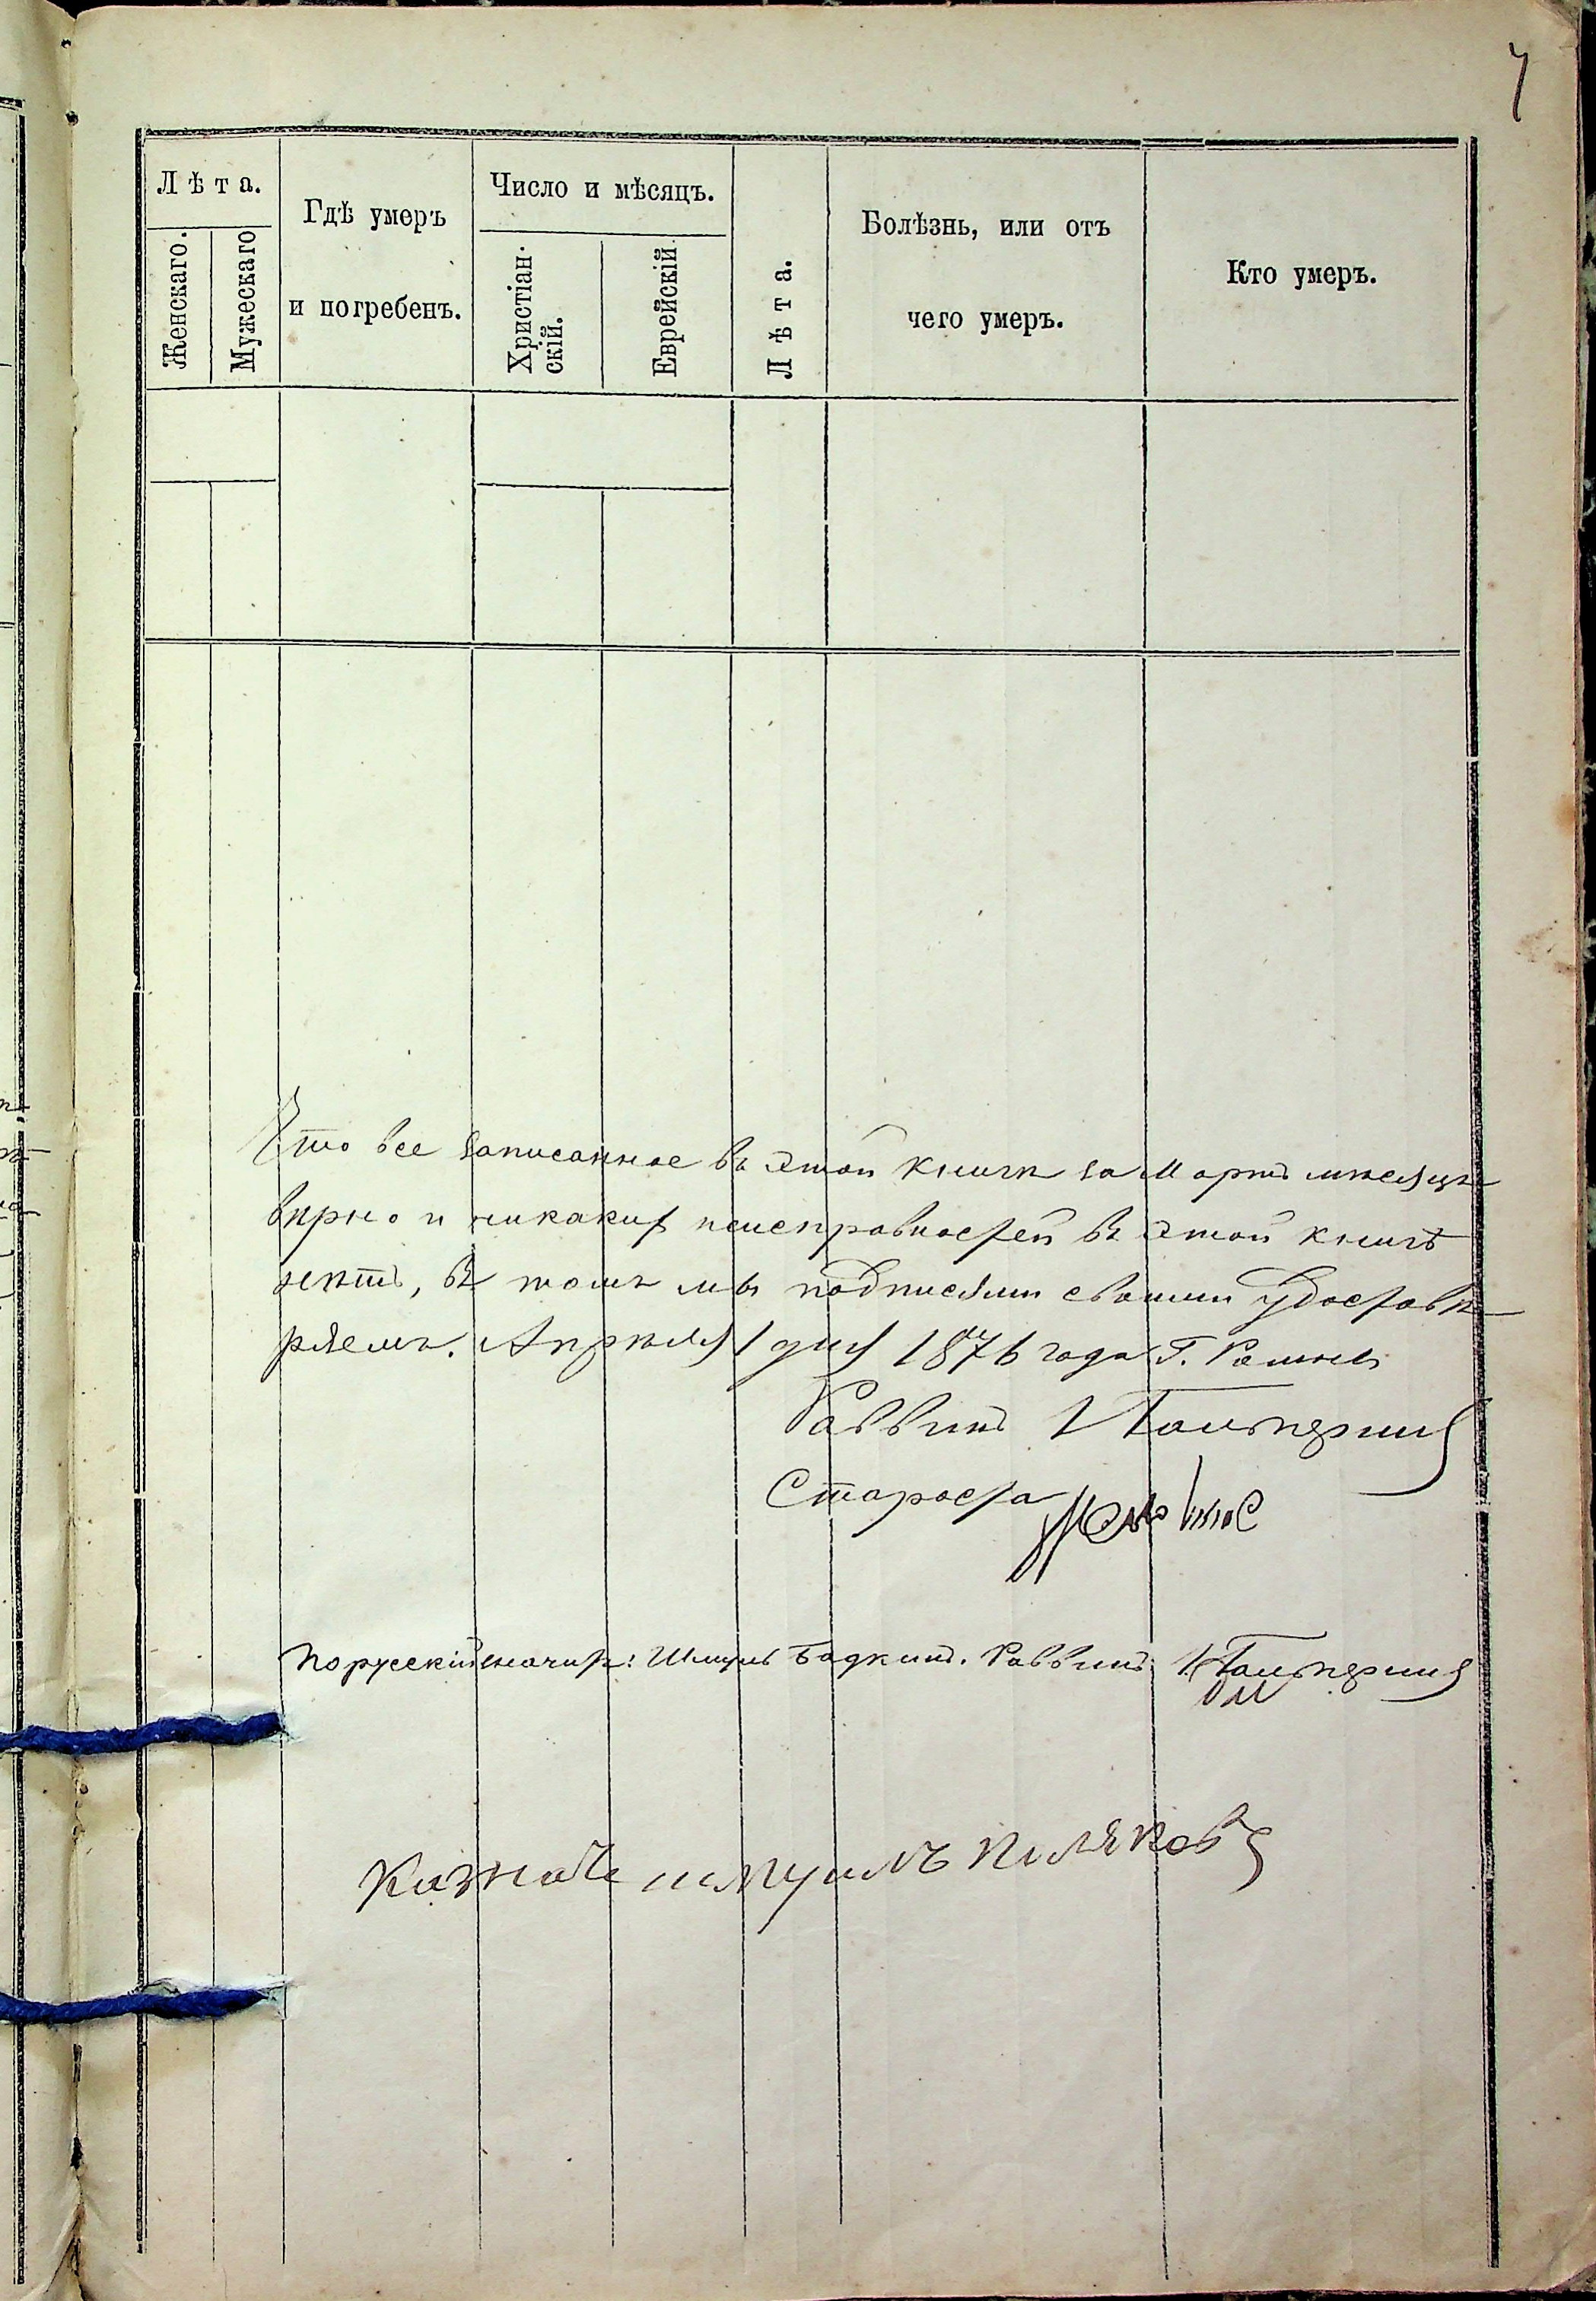 7
Лѣта.
Женскаго.
Мужескаго
Гдѣ умеръ
и погребенъ.
Число и мѣсяцъ.
Христіан-
скій.
Еврейскій.
Лѣта.
Болѣзнь, или отъ
чего умеръ.
Кто умеръ.
Что все записанное въ этой книгѣ за Мартъ мѣсяцъ
вѣрно и никакихъ неисправностей въ этой книгѣ
нѣтъ, въ томъ мы подписями своими удостовѣ-
ряемъ. Апрѣля 1 дня 1876 года Г.
Раввинъ
Староста
По русскій значитъ: Шмуль Бадкинъ. Раввинъ
Казначе шмуилъ Поляковъ